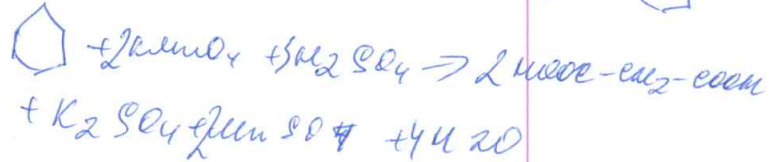 +2KMnO4 +3H2SO4 → 2 HOOC-CH2-COOH
+ K2SO4+2MnSO4 +4H2O